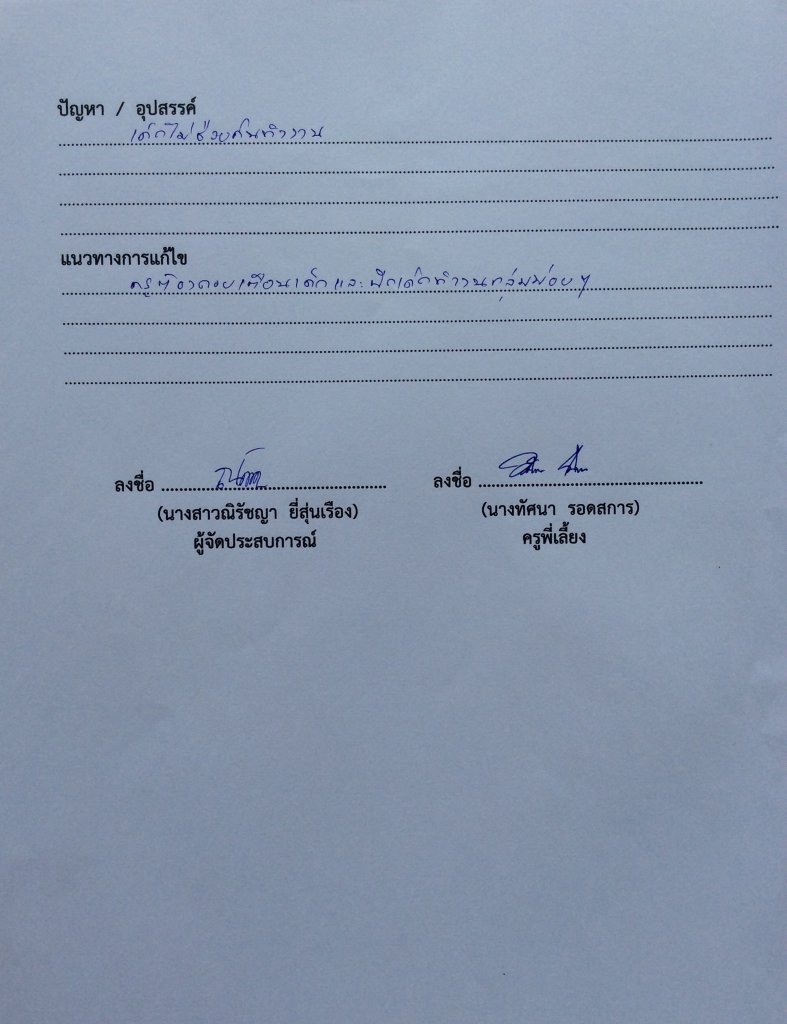 ปัญหา / อุปสรรค์
เด็กไม่ช่วยกันทำงาน
แนวทางการแก้ไข
ครูต้องคอยเตือนเด็กและฝึกเด็กทำงานกลุ่มบ่อยๆ
ลงชื่อ ลงชื่อ
(นางสาวณิรัชญา ยี่สุ่นเรือง) (นางทัศนา รอดสการ)
ผู้จัดประสบการณ์ ครูพี่เลี้ยง